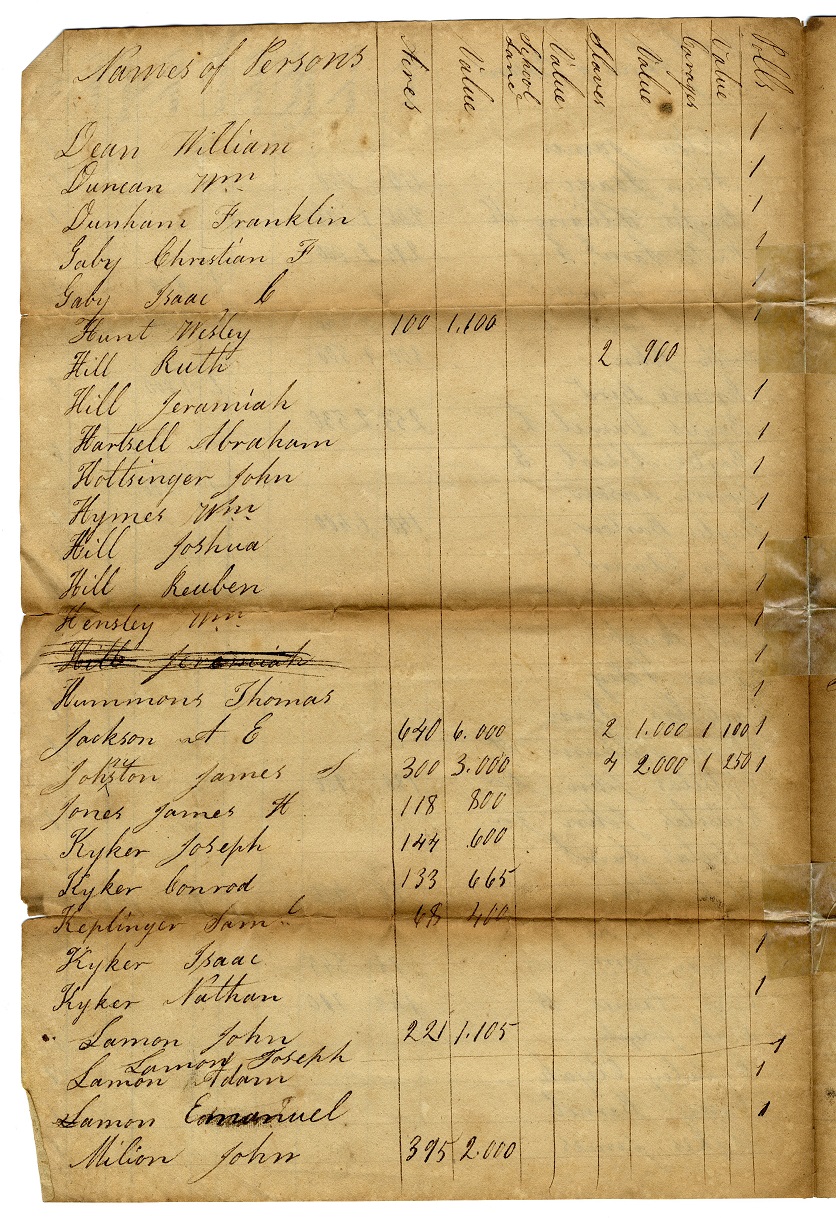 Names of Persons Acres Value School Land Value Slaves Value Carages Value Polls
Dean William 1
Duncan Wm 1
Dunham Franklin 1
Gaby Christian F 1
Gaby Isaac C 1
Hunt Wesley 100 1.100 1
Hill Ruth 2 900
Hill Jeramiah 1
Hartsell Abraham 1
Hottsinger John 1
Hymes Wm 1
Hill Joshua 1
Hill Reuben 1
Hensley Wm 1
Hill Jeramiah 1
Hummons Thomas 1
Jackson A E 640 6.000 2 1.000 1 100 1
Johnston James S 300 3.000 4 2.000 1 250 1
Jones James H 118 800
Kyker Joseph 144 600
Kyker Conrod 133 665
Keplinger Saml 68 400
Kyker Isaac 1
Kyker Nathan 1
Lamon John 221 1.105
Lamon Joseph 1
Lamon Adam 1
Lamon Emanuel 1
Milion John 395 2.000